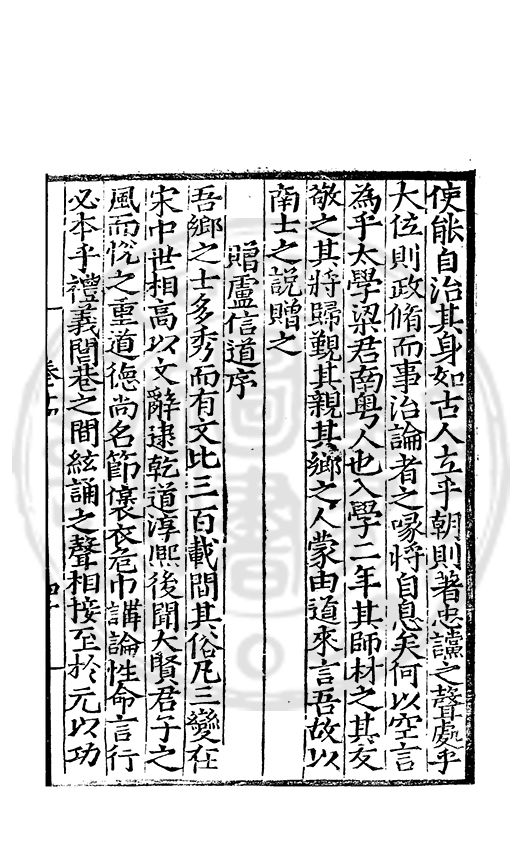 使能自治其身如古人立乎朝則著忠讜之聲處乎
大位則政脩而事治論者之喙將自息矣何以空言
為乎太學梁君南粵人也入學二年其師材之其友
敬之其將歸覲其親其鄉之人蒙由道來言吾故以
南士之説贈之
贈盧信道序
吾鄉之士多秀而有文比三百載間其俗凡三變在
宋中世相高以文辭逮乾道淳熙後聞大賢君子之
風而悅之重道德尚名節褒衣危巾講論性命言行
必本乎禮義閭巷之間絃誦之聲相接至於元以功